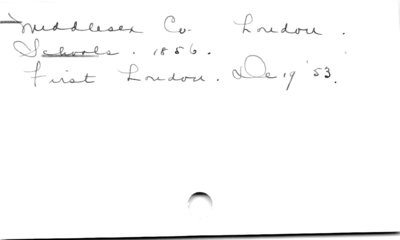 Middlesex Co. London.
Schools. 1856.
First London. De 19 '53.